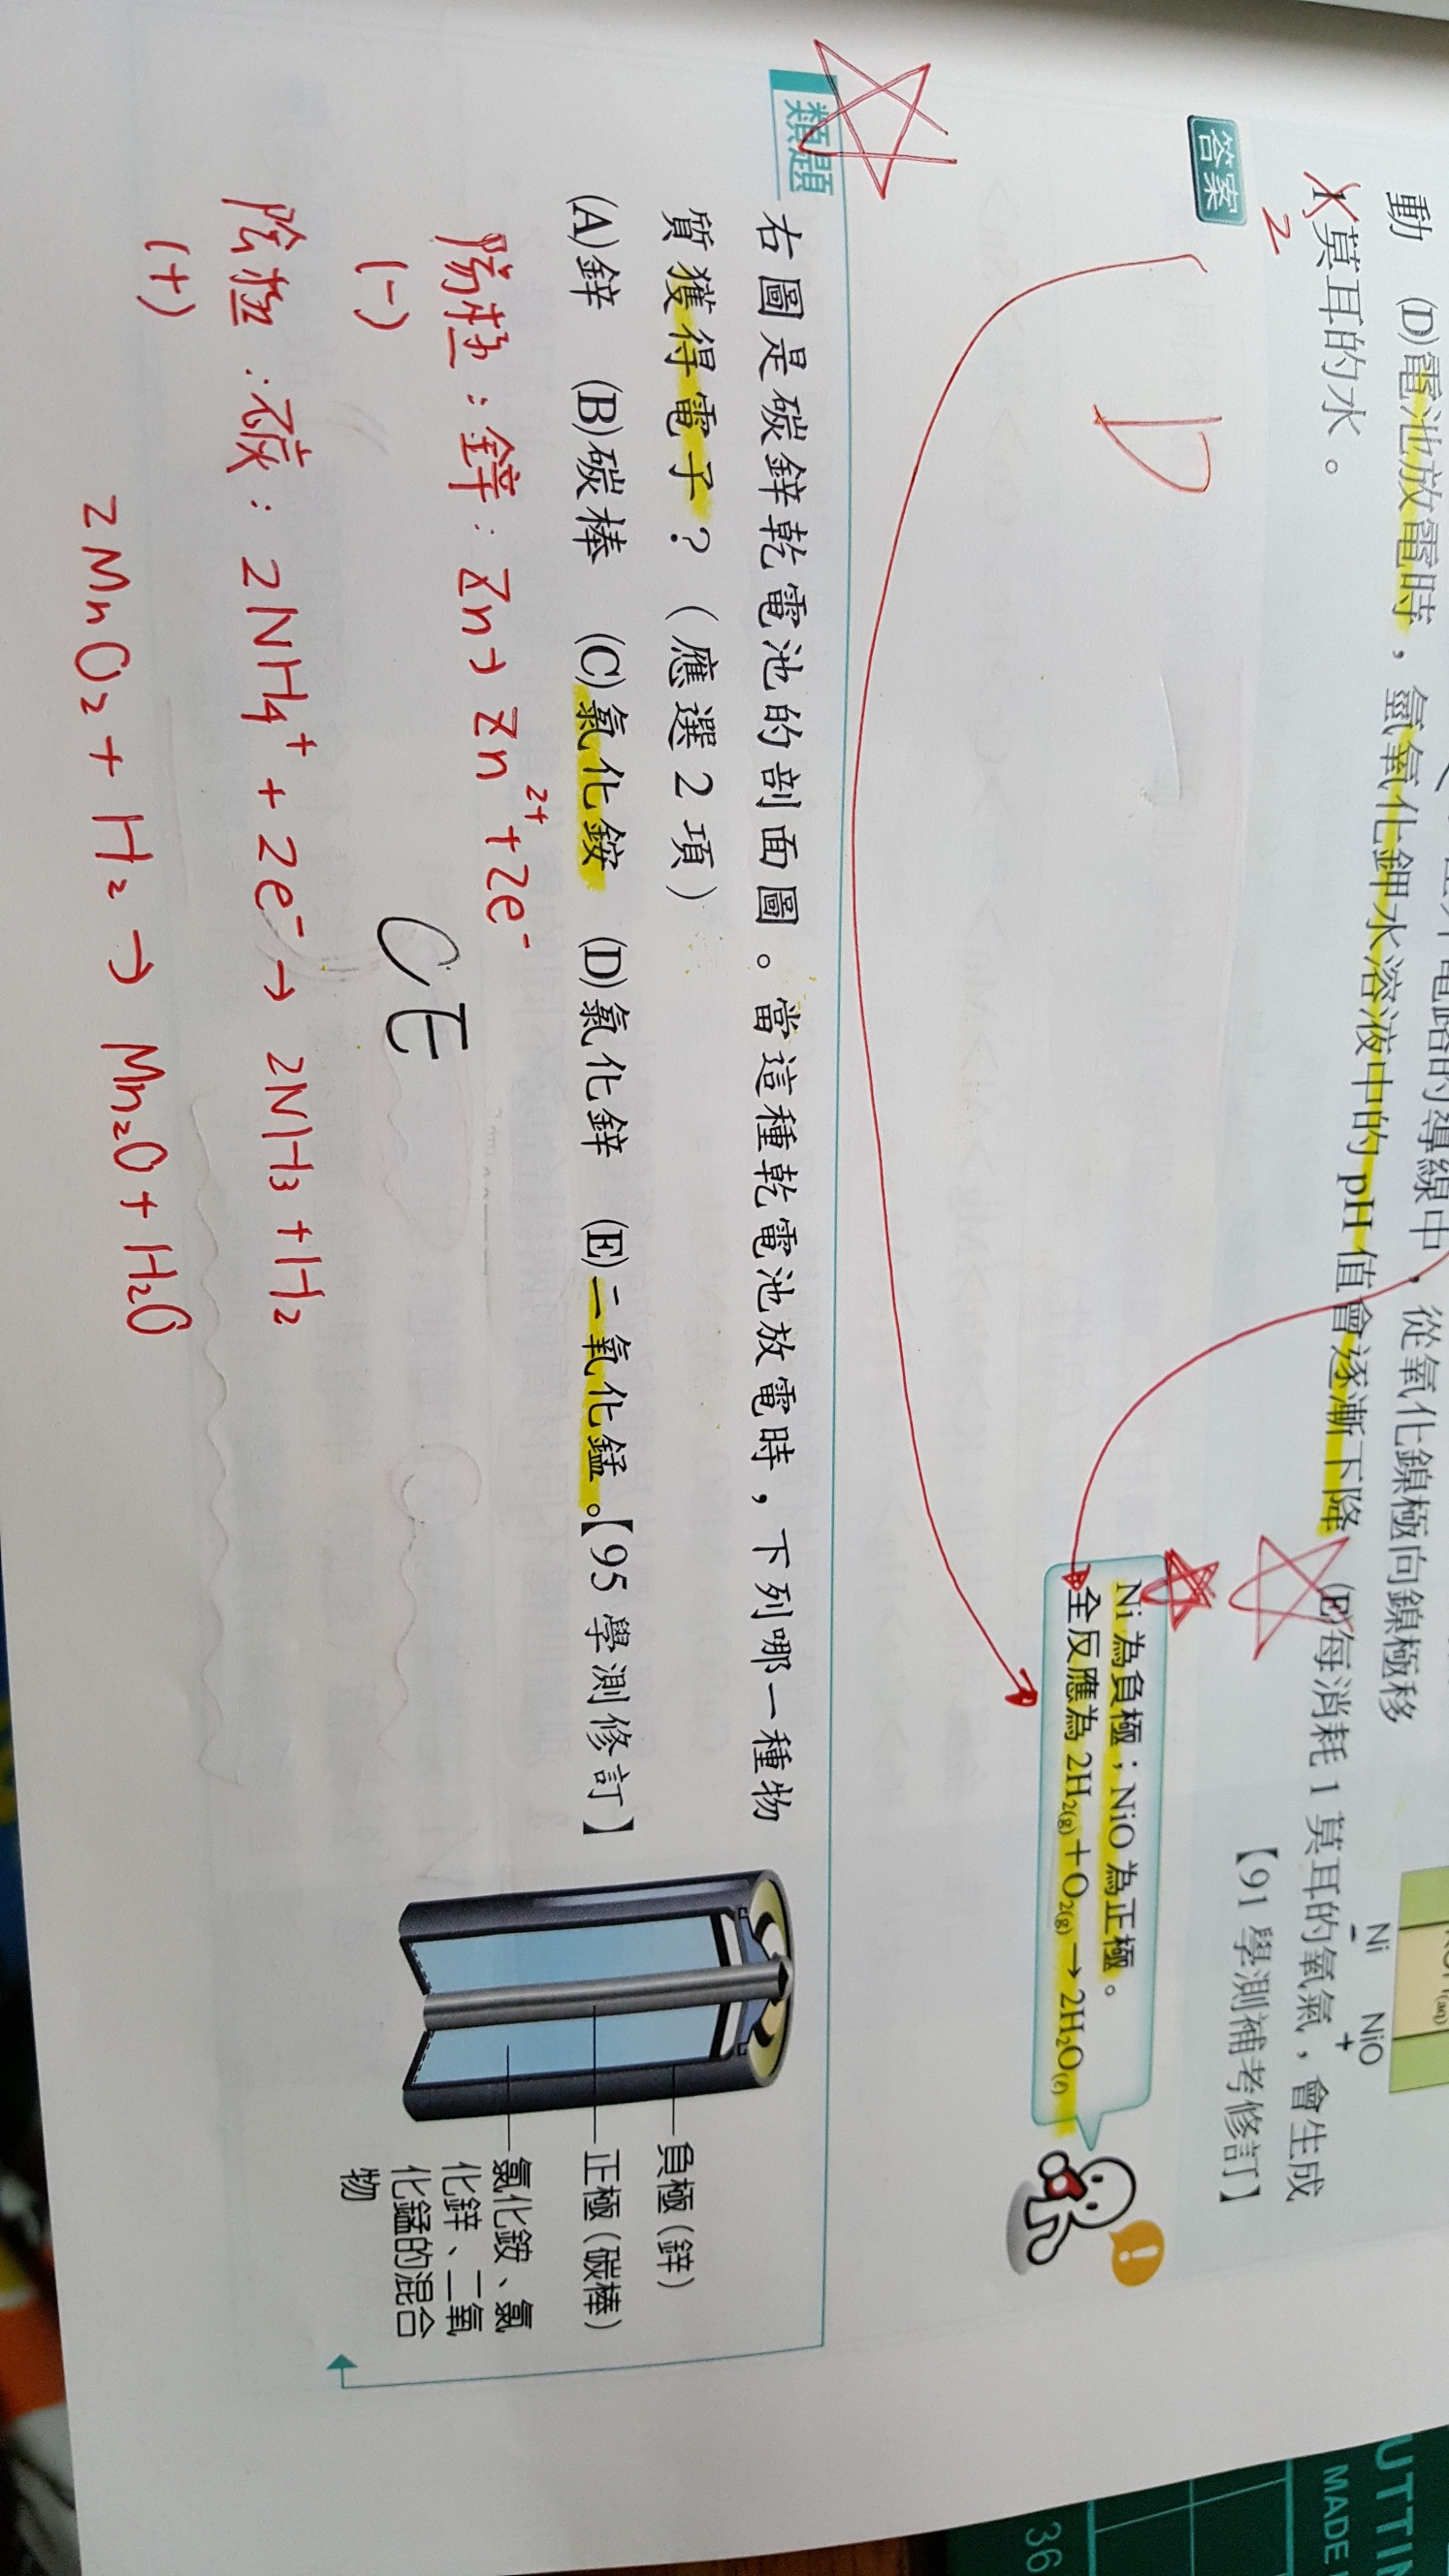 動 (D)電池放電時，氫氧化鉀水溶液中的 pH 值會逐漸下降 (E)每消耗 1 莫耳的氧氣，會生成
1 莫耳的水。
2
【91 學測補考修訂】
導線中，從氧化鎳極向鎳極移
Ni
-
NiO
+
答案
D
Ni 為負極；NiO 為正極。
全反應為 2H₂(g)＋O₂(g)→2H₂O(ℓ)
類題
右圖是碳鋅乾電池的剖面圖。當這種乾電池放電時，下列哪一種物
質獲得電子？（應選 2 項）
(A)鋅 (B)碳棒 (C)氯化銨 (D)氯化鋅 (E)二氧化錳。【95 學測修訂】
陽極：鋅：Zn→Zn²⁺+2e⁻
(-)
CE
陰極：碳：2NH₄⁺+2e⁻→2NH₃+H₂
(+)
2MnO₂+H₂→Mn₂O+H₂O
負極(鋅)
正極(碳棒)
氯化銨、氯
化鋅、二氧
化錳的混合
物
36
MADE